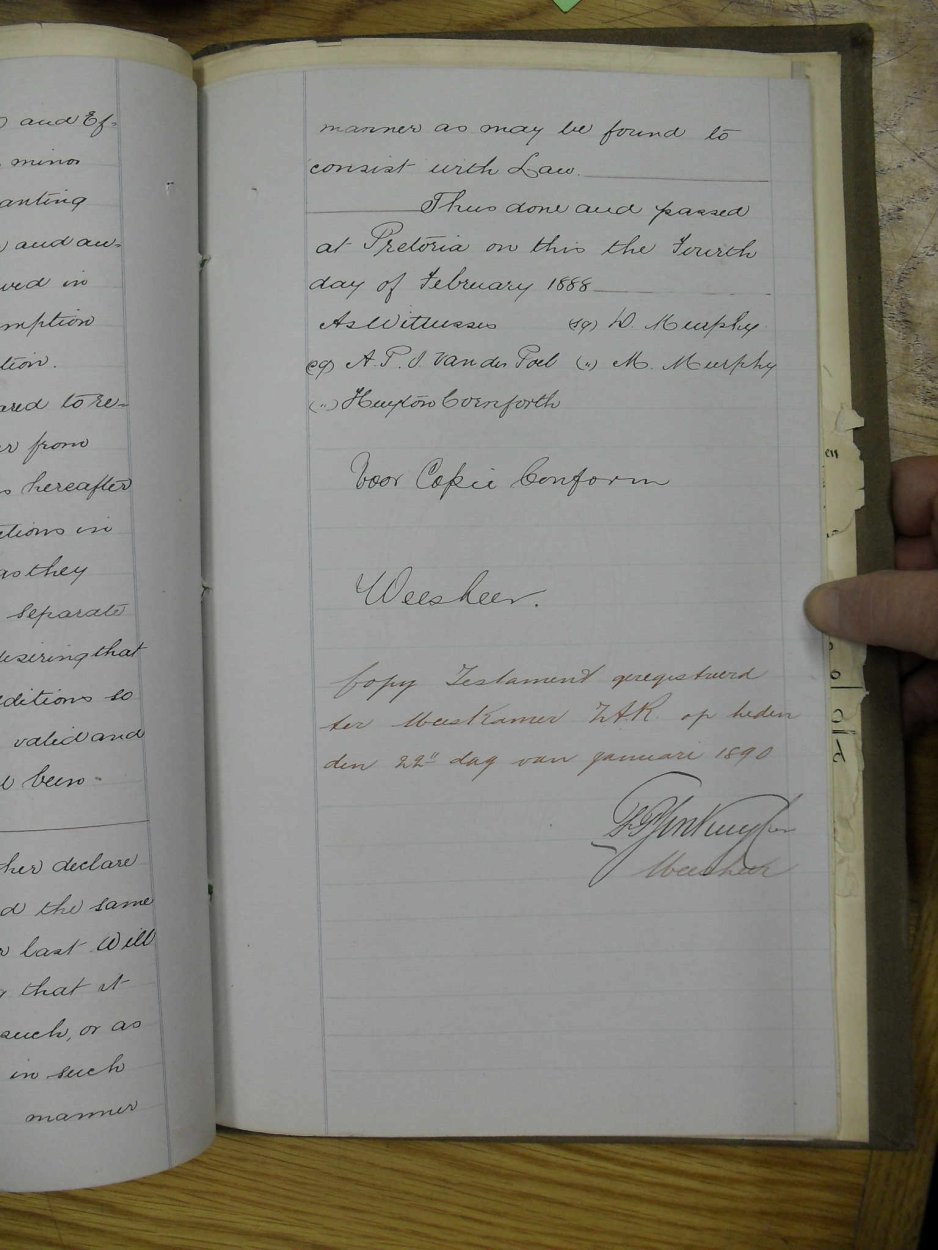 and Ef-
minor
anting
and au-
ved in
mption
tion.
ared to re-
from
hereafter
ctions in
as they
separate
desiring that
ditions so
valid and
been
her declare
d the same
last Will
that it
such, or as
in such
manner
manner as may be found to
consist with Law.
Thus done and passed
at Pretoria on this the Fourth
day of February 1888
As Witnesses (sg) D. Murphy
(sg) A. P. J. van der Poel (") M. Murphy
(") Huxton Cornforth
Voor Copie Conform
Weesheer.
Copy Testament geregistreerd
ter Weeskamer Z.A.R. op heden
den 22" dag van januari 1890
Weesheer